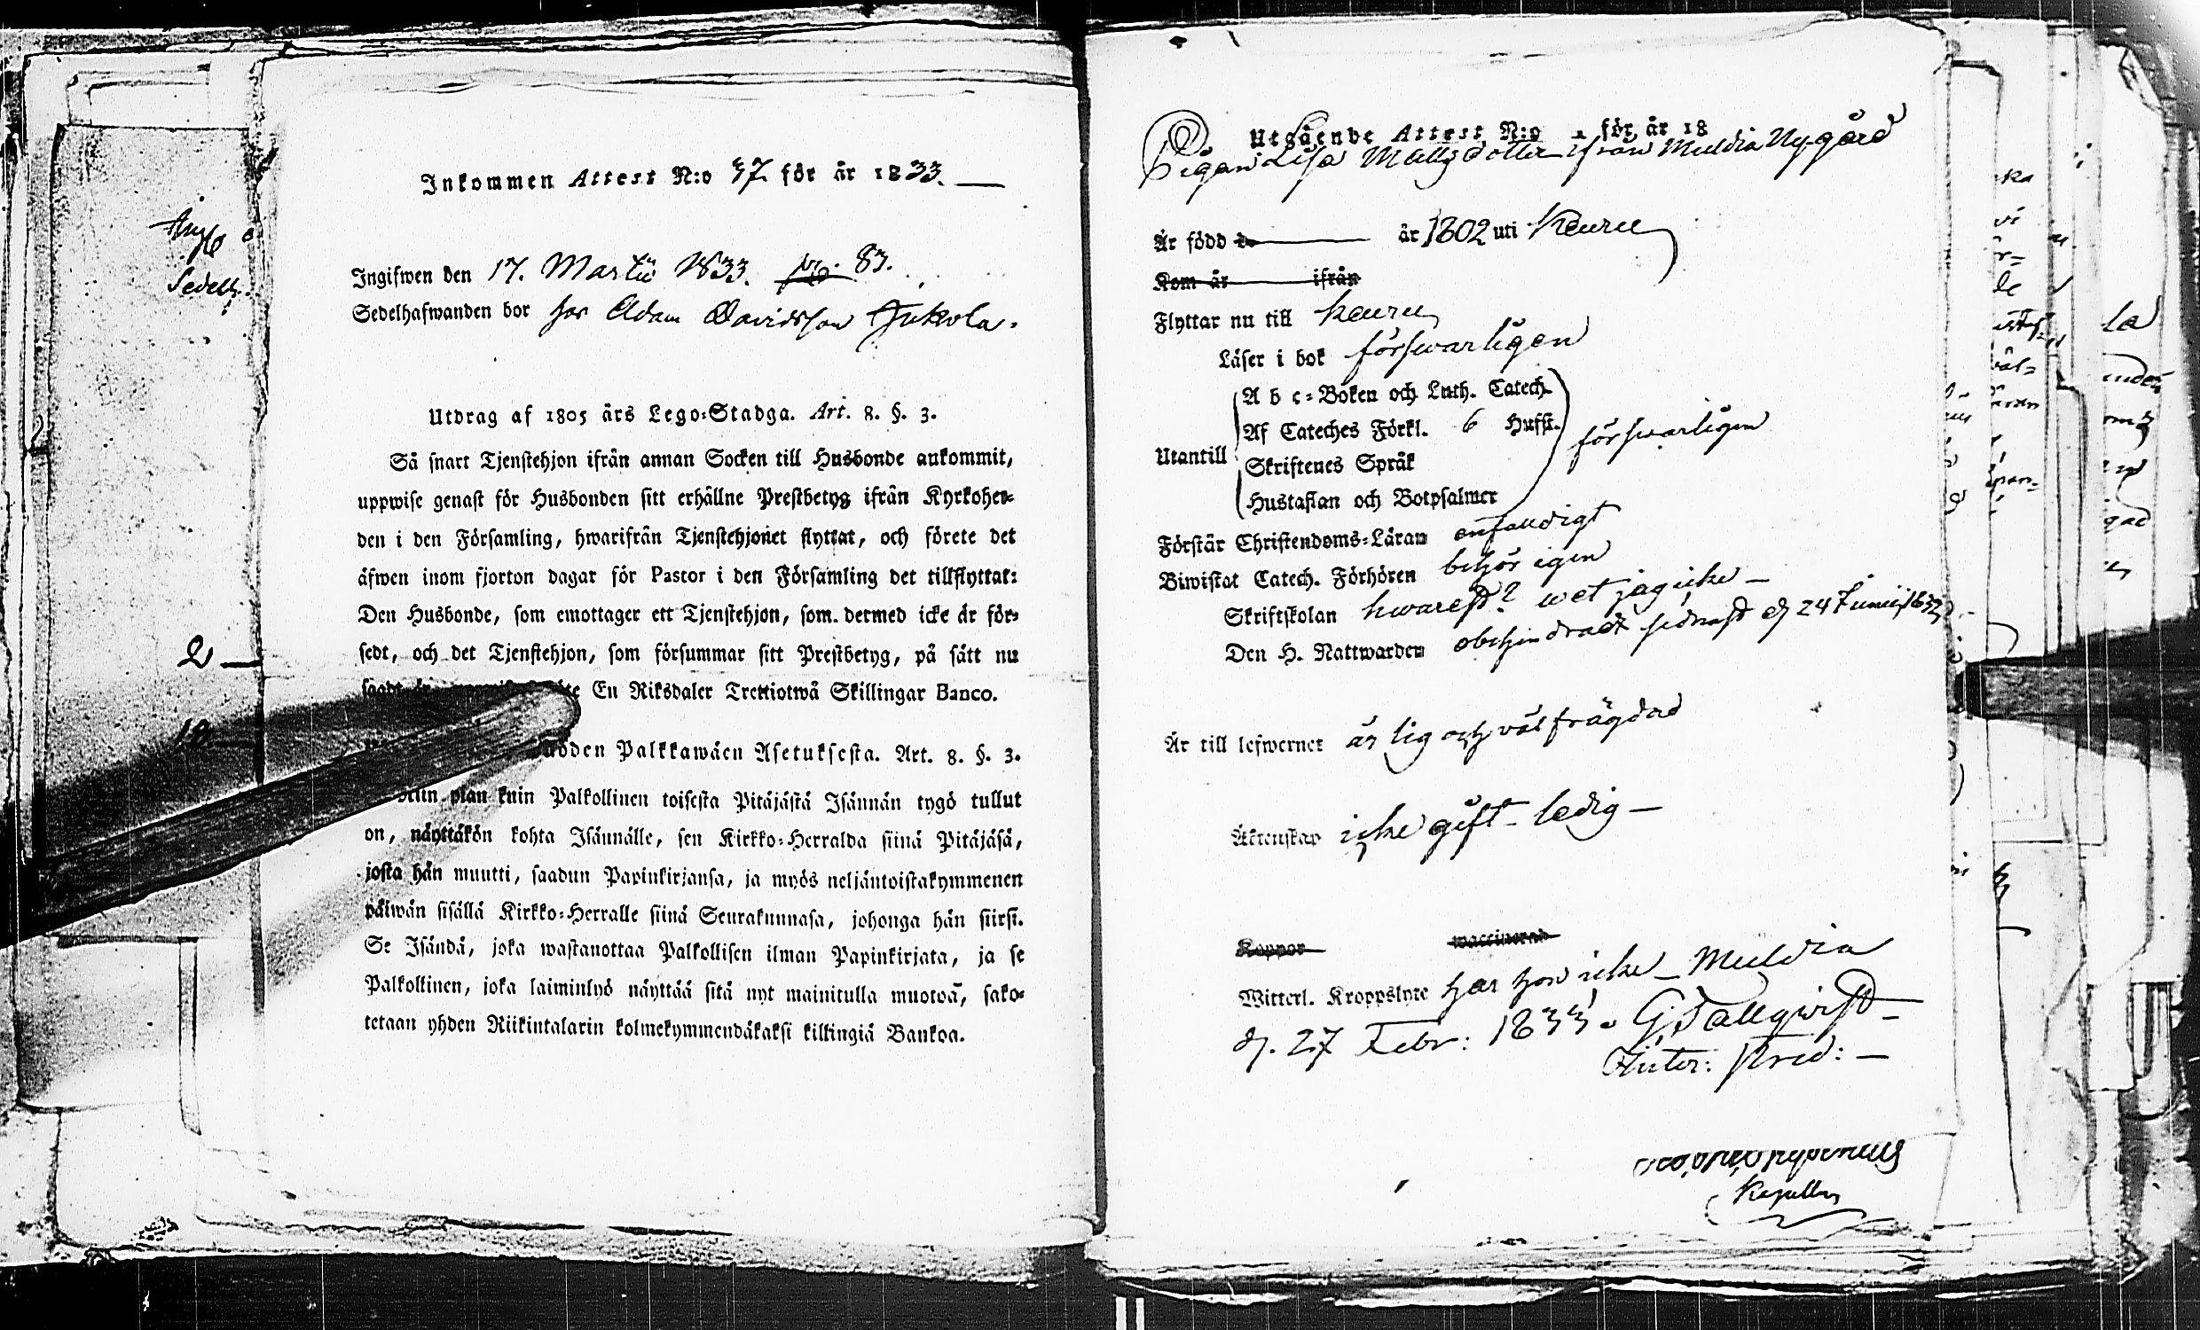 Inkommen Attest N:o 47. för år 1833.
Ingifwen den 17. Martii 1833. 83.
Sedelhafwanden bor hos Adam Davidsson Jukola.
Utdrag af 1805 års Lego-Stadga. Art. 8. §. 3.
Så snart Tjenstehjon ifrån annan Socken till Husbonde ankommit,
uppwise genast för Husbonden sitt erhållne Prestbetyg ifrån Kyrkoher-
den i den Församling, hwarifrån Tjenstehjonet flyttat, och förete det
äfwen inom fjorton dagar för Pastor i den Församling det tillflyttat:
Den Husbonde, som emottager ett Tjenstehjon, som dermed icke är för-
sedt, och det Tjenstehjon, som försummar sitt Prestbetyg, på sätt nu
En Riksdaler Trettiotwå Skillingar Banco.
Palkkawäen Asetuksesta. Art. 8. §. 3.
pian kuin Palkollinen toisesta Pitäjästä Isännän tygö tullut
on, näyttäkön kohta Isännälle, sen Kirkko-Herralda siinä Pitäjäsä,
josta hän muutti, saadun Papinkirjansa, ja myös neljäntoistakymmenen
päiwän sisällä Kirkko-Herralle siinä Seurakunnasa, johonga hän siirsi.
Se Isändä, joka wastanottaa Palkollisen ilman Papinkirjata, ja se
Palkollinen, joka laiminlyö näyttää sitä nyt mainitulla muotoa, sako-
tetaan yhden Riikintalarin kolmekymmendäkaksi killingiä Bankoa.
2
18
Sedell
Utgående Attest N:o för år 18
Pigan Lisa Matts dotter ifrån Muldia Nygård
Är född år 1802 uti Keuru
Kom år ifrån
Flyttar nu till Keuru
Läser i bok förswarligen
A b c-Boken och Luth. Catech.
Af Cateches Förkl. 6 Hufst. förswarligen
Utantill
Skriftenes Språk
Hustaflan och Botpsalmer
Förstår Christendoms-Läran enfaldigt
Biwistat Catech. Förhören behörigen
Skriftskolan hwarest? wet jag icke
Den H. Nattwarden obehindradt sednast d 24 Junii 1832
Är till lefwernet ärlig och väl frägdad
Äktenskap icke gift - ledig
Koppor waccinerad
Witterl. Kroppslyte har hon icke - Muldia
d. 27 Febr: 1833. G Tallqwist